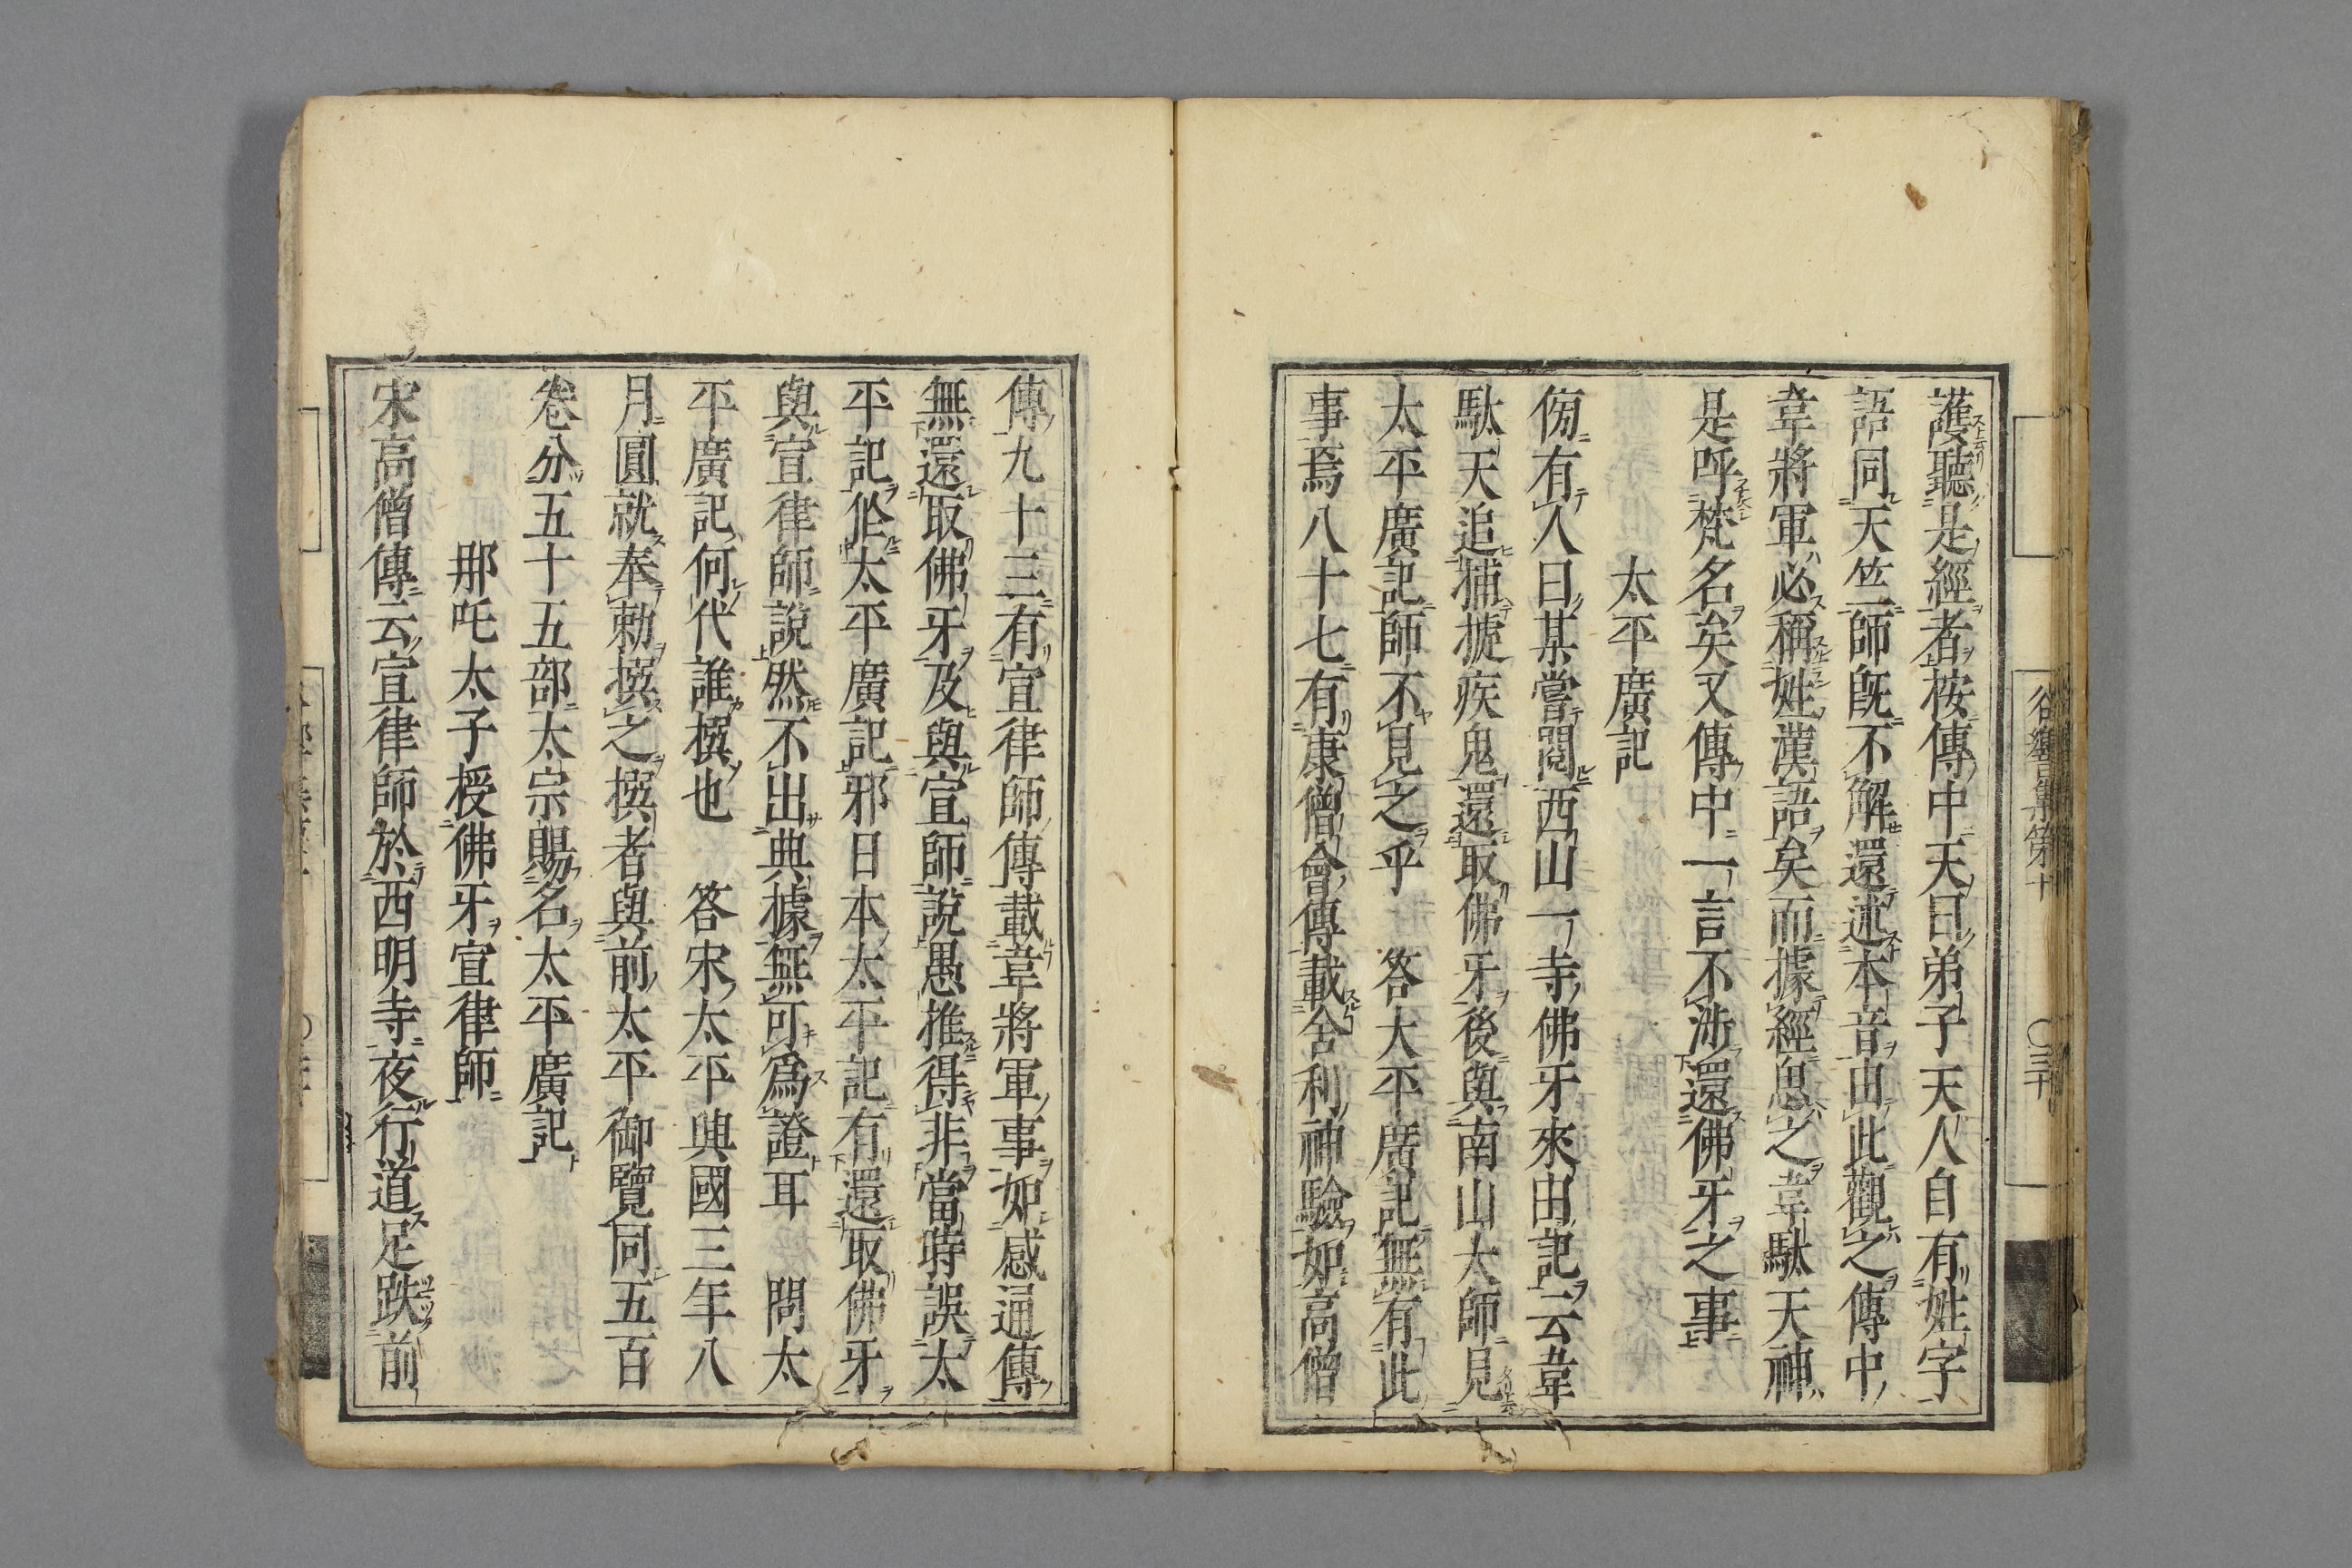 護聽是經者桉傳中天曰弟子天人自有姓字
語同天竺師既不解還述本音由此觀之傳中
韋將軍必稱姓漢語矣而據經思之韋馱天神
是呼梵名矣又傳中一言不涉還佛牙之事
太平廣記
傍有人曰某嘗閱西山一寺佛牙來由記云韋
馱天追捕㨿疾鬼還取佛牙後與南山太師見
太平廣記師不見之乎　答大平廣記無有此
事焉八十七有康僧會傳載舍利神驗如高僧
傳九十三有宣律師傳載韋將軍事如感通傳
無還取佛牙及與宣師說愚推得非當時誤太
平記佢太平廣記邪日本太平記有還取佛牙
與宣律師說然不出典據無可爲證耳　問太
平廣記何代誰撰也　答宋太平興國三年八
月圓就奉勅撰之撰者與前太平御覽同五百
卷分五十五部太宗賜名太平廣記
那吒太子授佛牙宣律師
宋高僧傳云宣律師於西明寺夜行道足跌前
谷響集第十
〇三十